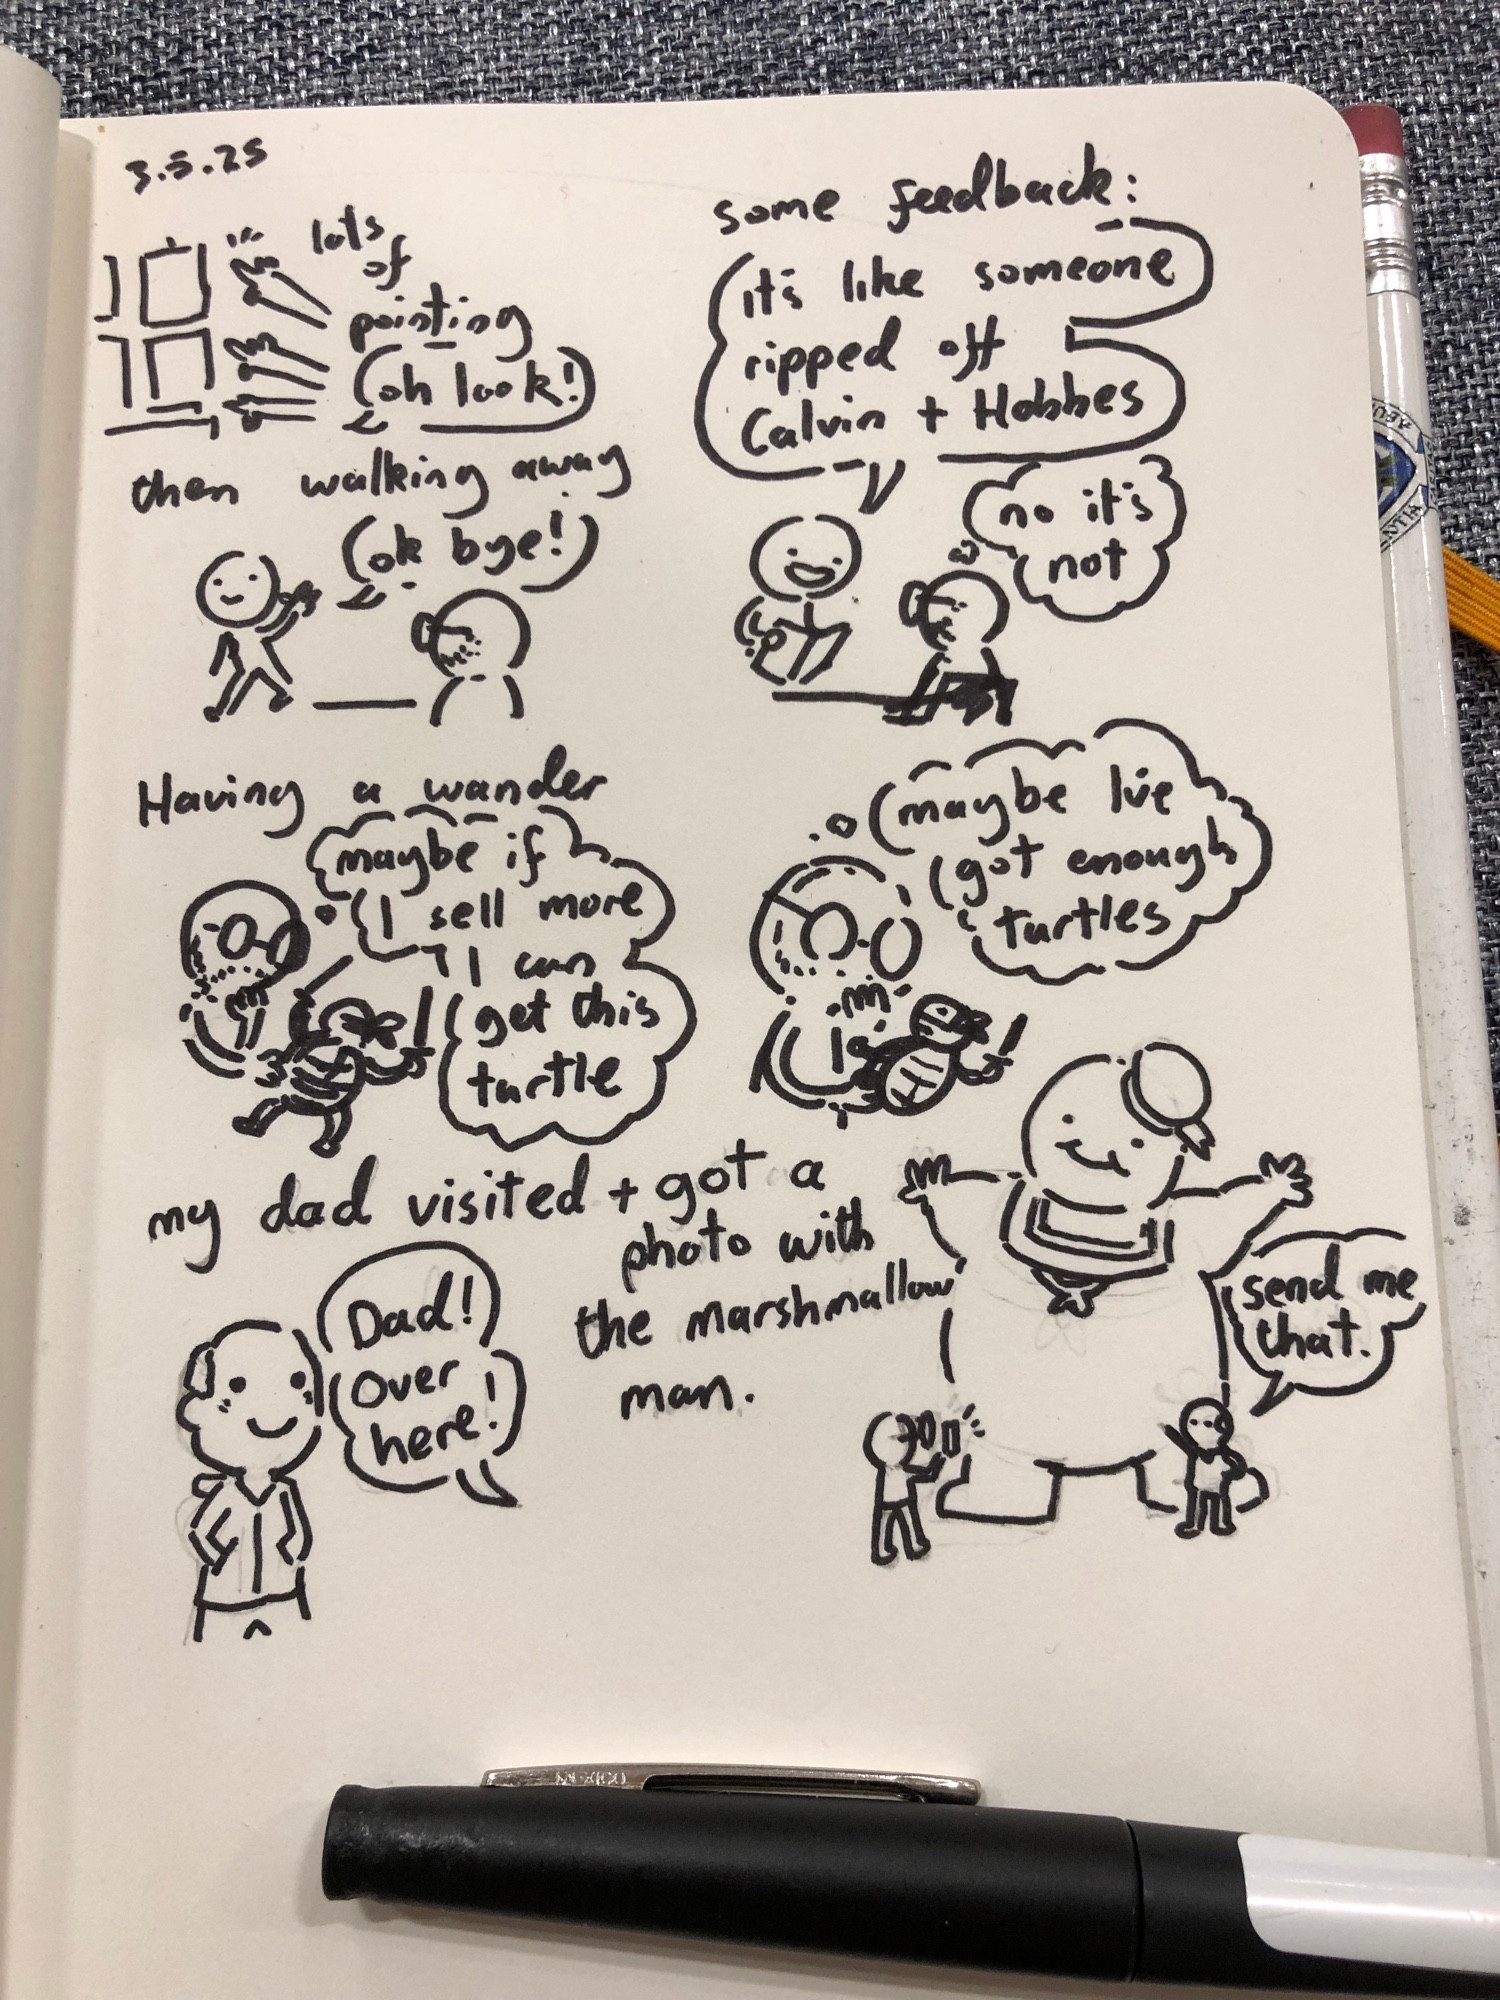 3.5.25
lots
of
pointing
oh look!
then walking away
ok bye!
some feedback:
it's like someone
ripped off
Calvin + Hobbes
no it's
not
Having a wander
maybe if
I sell more
I can
get this
turtle
maybe I've
got enough
turtles
my dad visited + got a
photo with
the marshmallow
man.
Dad!
Over
here!
send me
that.
MEXICO